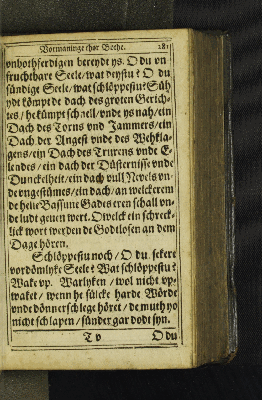 Vormaninge thor Bothe. 281
vnbothferdigen bereydt ys. O du vn
fruchtbare Seele/ wat deystu? O du
sündige Seele/ wat schlöppestu? Süh
ydt kömpt de dach des groten Gerich-
tes/ he kümpt schnell/ vnde ys nah/ ein
Dach des Torns vnd Jammers/ ein
Dach der Angest vnde des Wehkla-
gens/ ein Dach des Trurens vnde E-
lendes/ ein dach der Düsternisse vnde
Dunckelheit/ ein dach vull Nevels vn-
de vngestümes/ ein dach/ an welckerem
de helle Bassune Gades eren schall vn-
de ludt geuen wert. O welck ein schreck-
lick wort werden de Godtlosen an dem
Dage hören.
Schlöppestu noch/ O du sekere
vordömlyke Seele? Wat schlöppestu?
Wake vp. Warlyken/ wol nicht vp-
waket/ wenn he sülcke harde Wörde
vnde dönnerschlege höret/ de muth yo
nicht schlapen/ sünder gar dodt syn.
T v O du